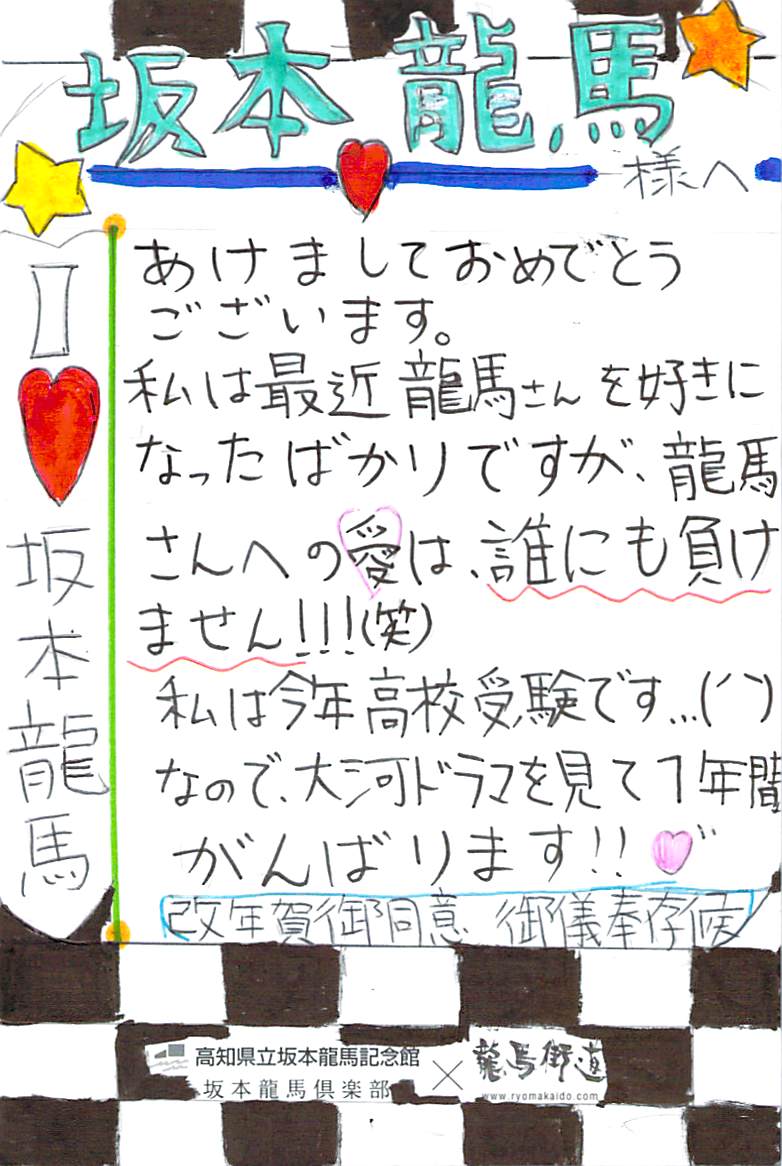 坂本龍馬
様へ
I
♥
坂本龍馬
あけましておめでとう
ございます。
私は最近龍馬さんを好きに
なったばかりですが、龍馬
さんへの愛は、誰にも負け
ません!!!(笑)
私は今年高校受験です…(´`)
なので、大河ドラマを見て1年間
がんばります!!
改年賀御同意 御儀奉存候
高知県立坂本龍馬記念館
坂本龍馬倶楽部
×
龍馬街道
www.ryomakaido.com